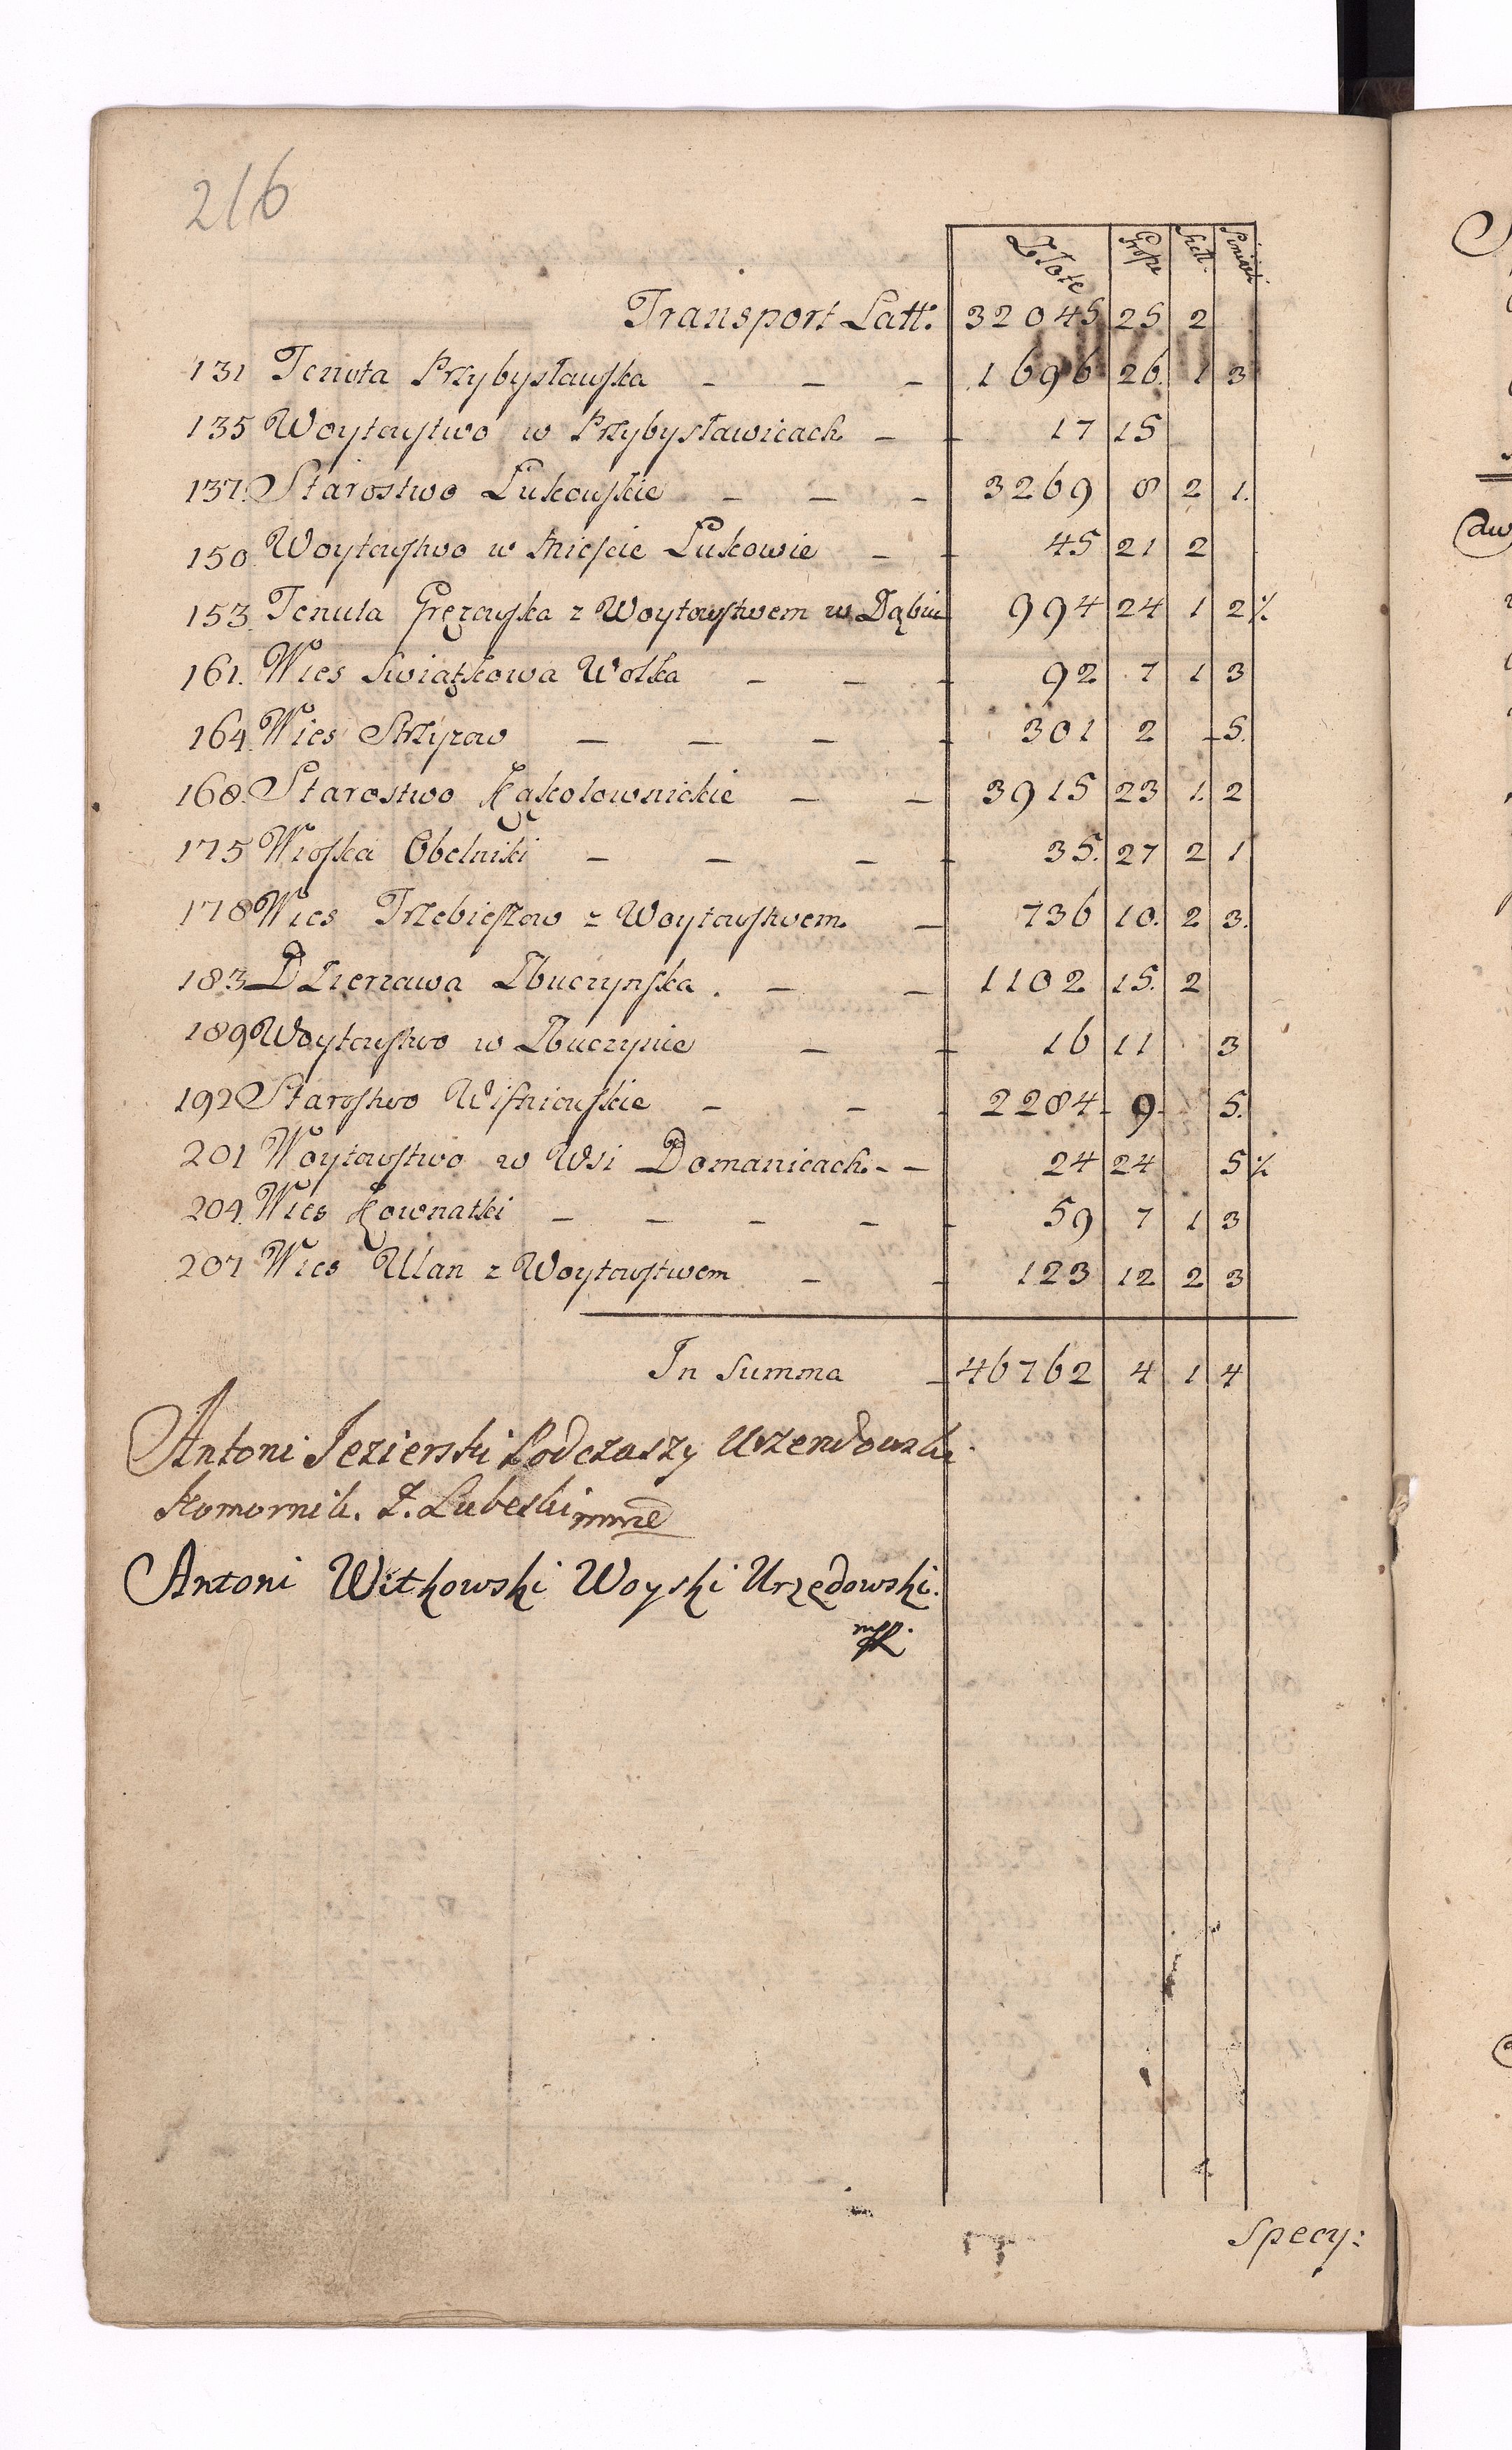 216
Złote Grosze Szel. Pieniążki
Transport Latt: 32045 25 2
131 Tenuta Przybysławska – – – 1696 26 1 3
135 Woytowstwo w Przybysławicach – – 17 15
137. Starostwo Lukowskie – – – 3269 8 2 1.
150. Woytowstwo w Mieście Lukowie – – 45 21 2
153. Tenuta Gręzowska z Woytowstwem w Dąbiu 994 24 1 2 ½
161. Wies Swiątkowa Wolka – – – 92 7 1 3
164. Wies Strzyzow – – – – 301 2 – 5.
168. Starostwo Kąkolownickie – – 3915 23 1. 2
175 Wioska Obelniki – – – – 35. 27 2 1
178 Wies Trzebieszow z Woytowstwem. – 736 10. 2 3.
183 Dzierzawa Zbuczynska. – – 1102 15. 2
189 Woytowstwo w Zbuczynie – – 16 11 3
192 Starostwo Wiśniowskie – – – 2284 9 5.
201 Woytowstwo w Wsi Domanicach. – – 24 24 5 ½
204. Wies Kownatki – – – – – 59 7 1 3
207 Wies Ulan z Woytowstwem – – 123 12 2 3
In Summa – 46762 4 1 4
Antoni Jezierski Podczaszy Urzendowski
Komornik. Z. Lubelski mmp
Antoni Witkowski Woyski Urzędowski.
mp.
Specy: